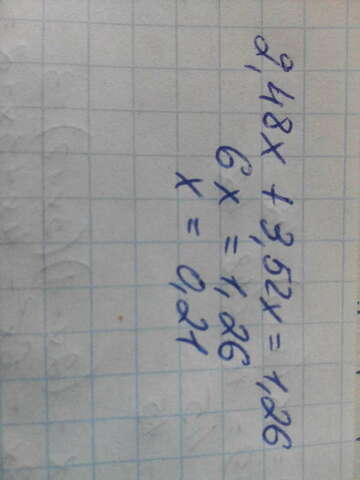 2,48x + 3,52x = 1,26
6x = 1,26
x = 0,21